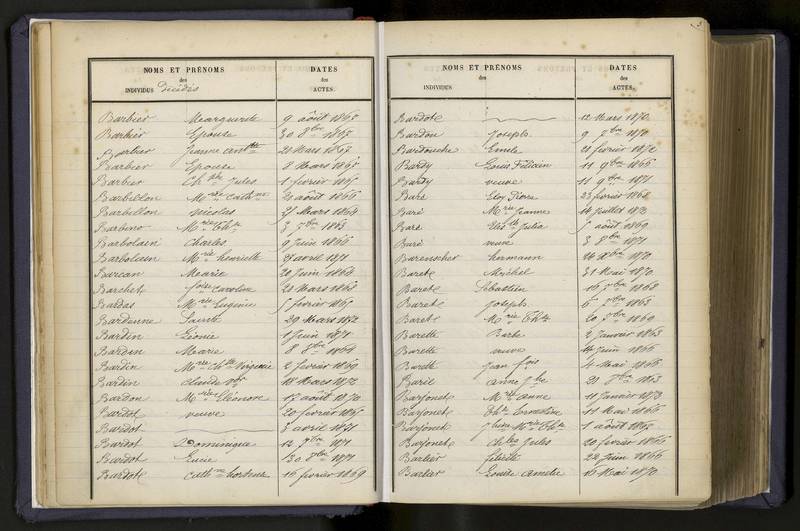 NOMS ET PRÉNOMS
des
INDIVIDUS Décédés
DATES
des
ACTES.
Barbier Marguerite 9 août 1868
Barbier Epouse 30 8bre 1865
Barbier Jeanne 20 Mars 1868
Barbier Epouse 8 Mars 1865
Barbier Jules 1 février 1865
Barbillon Mrie Cathne 20 août 1866
Barbillon Nicolas 27 Mars 1864
Barbino Mrie 3 7bre 1863
Barbolain Charles 9 Juin 1866
Barbolain Mrie henriette 27 avril 1871
Barcan Marie 20 Juin 1864
Barchet foise Caroline 21 Mars 1868
Bardas Mrie Eugénie 5 février 1865
Bardenne 29 Mars 1872
Bardin Léonie 1 Juin 1871
Bardin Marie 8 8bre 1864
Bardin Virginie 2 février 1869
Bardin claude 18 Mars 1872
Bardon Mrie Eléonore 15 août 1870
Bardot veuve 20 février 1865
Bardot 8 avril 1871
Bardot Dominique 12 7bre 1871
Bardot Lucie 30 8bre 1871
Bardot Cathne hortense 16 février 1869
3
NOMS ET PRÉNOMS
des
INDIVIDUS
DATES
des
ACTES.
Bardot 12 Mars 1870
Bardou Joseph 9 1870
Bardouche Emile 21 février 1870
Bardy Louis Félicien 11 9bre 1866
Bardy veuve 11 9bre 1871
Baré Eloy Pierre 23 février 1868
Baré Mrie Jeanne 14 Juillet 1873
Baré Elisth Julia 5 août 1869
Baré veuve 3 8bre 1871
Barenscher hermann 26 Xbre 1870
Baret Michel 31 Mai 1870
Baret Sébastien 16 7bre 1868
Baret Joseph 6 7bre 1863
Baret Mrie 20 7bre 1869
Barette Barbe 2 Janvier 1863
Barette veuve Juin 1865
Barett Jean fois 4 Mai 1865
Baril anne 21 1863
Baronet Mrie anne 11 Janvier 1873
Baronet Ernestine 11 Mai 1866
Baronet Mrie 1 août 1865
Baronet chles Jules 20 février 1866
Bartier félicité 22 Juin 1866
Bartier Louise Amélie 16 Mai 1870